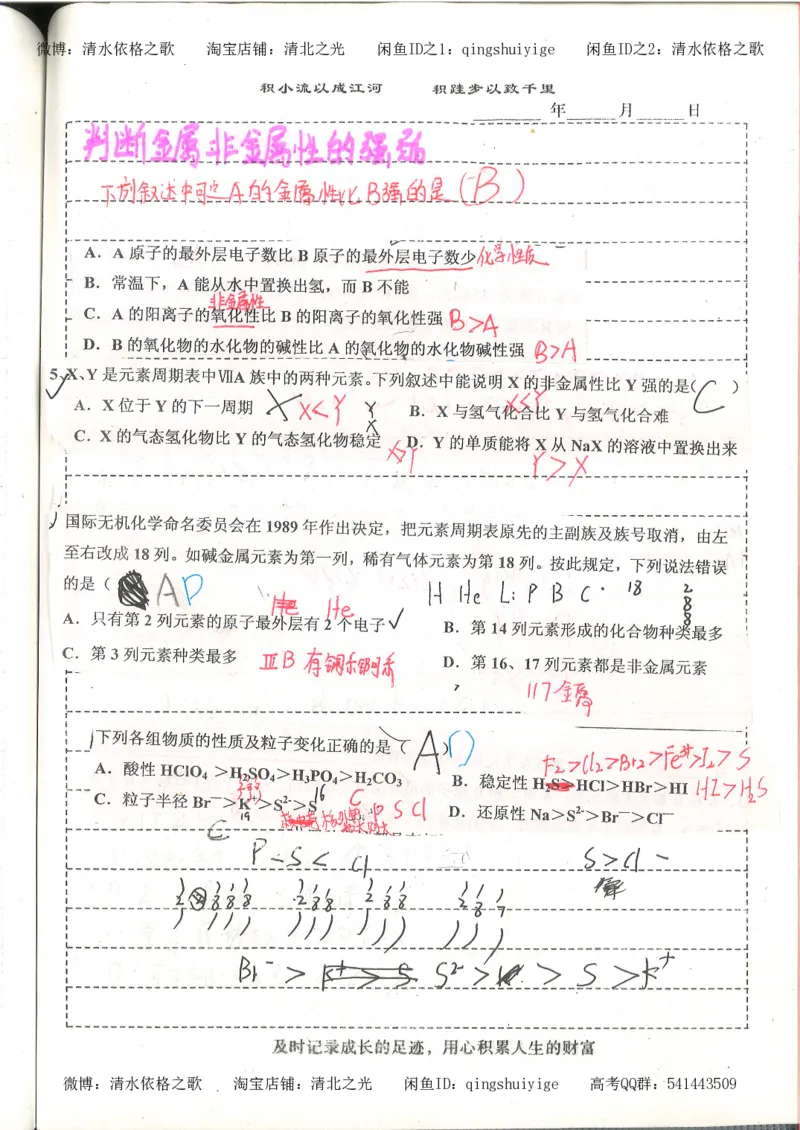 微博：清水依格之歌 淘宝店铺：清北之光 闲鱼ID之1：qingshuiyige 闲鱼ID之2：清水依格之歌
积小流以成江河 积跬步以致千里
年 月 日
判断金属非金属性的强弱
下列叙述中可定A的金属性比B强的是（B）
A．A 原子的最外层电子数比 B 原子的最外层电子数少 化学性质
B．常温下，A 能从水中置换出氢，而 B 不能
非金属性
C．A 的阳离子的氧化性比 B 的阳离子的氧化性强 B>A
D．B 的氧化物的水化物的碱性比 A 的氧化物的水化物碱性强 B>A
5 X、Y 是元素周期表中ⅦA 族中的两种元素。下列叙述中能说明 X 的非金属性比 Y 强的是（C）
A．X 位于 Y 的下一周期 X X<Y Y X B．X 与氢气化合比 Y 与氢气化合难 X<Y
C．X 的气态氢化物比 Y 的气态氢化物稳定 X>Y D．Y 的单质能将 X 从 NaX 的溶液中置换出来
Y>X
国际无机化学命名委员会在 1989 年作出决定，把元素周期表原先的主副族及族号取消，由左
至右改成 18 列。如碱金属元素为第一列，稀有气体元素为第 18 列。按此规定，下列说法错误
的是（ A D H He Li P B C 18 2 8 8 8
He He
A．只有第 2 列元素的原子最外层有 2 个电子 √ B．第 14 列元素形成的化合物种类最多
C．第 3 列元素种类最多 ⅢB 有镧系锕系 D．第 16、17 列元素都是非金属元素
117金属
下列各组物质的性质及粒子变化正确的是（ A D ）
F₂>Cl₂>Br₂>Fe³⁺>I₂>S
A．酸性 HClO₄ >H₂SO₄>H₃PO₄>H₂CO₃ B．稳定性 H₂S>HCl>HBr>HI HI>H₂S
C．粒子半径 Br⁻>K⁺>S²⁻>S 16 19 C P S Cl D．还原性 Na>S²⁻>Br⁻>Cl⁻
C
P S < Cl S>Cl
2 8 8 8 2 8 8 2 8 8 2 8 7
Br⁻ > K⁺ > S S²⁻ > > S > K⁺
及时记录成长的足迹，用心积累人生的财富
微博：清水依格之歌 淘宝店铺：清北之光 闲鱼ID：qingshuiyige 高考QQ群：541443509